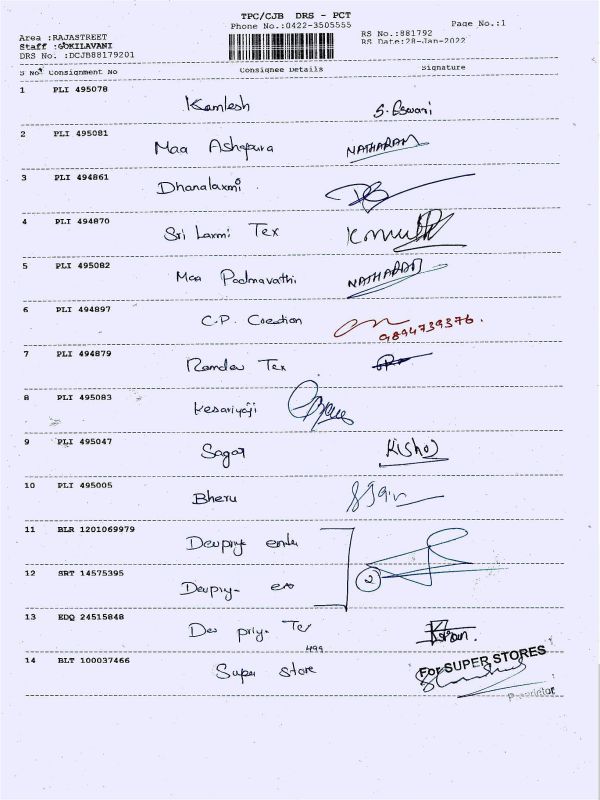 TPC/CJB DRS - PCT
Phone No.:0422-3505555
Page No.:1
Area :RAJASTREET
Staff :GOKILAVANI
DRS No. :DCJB88179201
RS No.:881792
RS Date:28-Jan-2022
S No. Consignment No Consignee Details Signature
1 PLI 495078 Kamlesh S. Eswari
2 PLI 495081 Maa Ashapura NATHARAM
3 PLI 494861 Dhanalaxmi
4 PLI 494870 Sri Laxmi Tex
5 PLI 495082 Maa Padmavathi NATHARAM
6 PLI 494897 C.P. Creation 9894739376.
7 PLI 494879 Ramdev Tex
8 PLI 495083 Kesariyaji
9 PLI 495047 Sagar Kisho
10 PLI 495005 Bheru SJain
11 BLR 1201069979 Devpriya
12 SRT 14575395 Devpriya 2
13 EDQ 24515848 Dev priya Tex
499
14 BLT 100037466 Super store For SUPER STORES
Proprietor